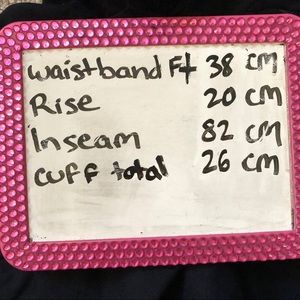 waistband Ft 38 cm
Rise 20 cm
Inseam 82 cm
cuff total 26 cm